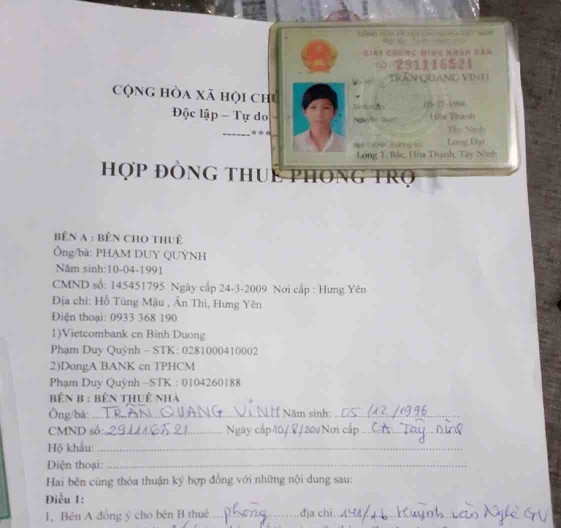 GIẤY CHỨNG MINH NHÂN DÂN
SỐ 291116521
TRẦN QUANG VINH
05-12-1996
Hòa Thành
Tây Ninh
Long Đại
Long T. Bắc, Hòa Thành, Tây Ninh
CỘNG HÒA XÃ HỘI CHỦ
Độc lập – Tự do
HỢP ĐỒNG THUÊ PHÒNG TRỌ
BÊN A : BÊN CHO THUÊ
Ông/bà: PHẠM DUY QUỲNH
Năm sinh:10-04-1991
CMND số: 145451795 Ngày cấp 24-3-2009 Nơi cấp : Hưng Yên
Địa chỉ: Hồ Tùng Mậu , Ân Thi, Hưng Yên
Điện thoại: 0933 368 190
1)Vietcombank cn Binh Duong
Phạm Duy Quỳnh – STK: 0281000410002
2)DongA BANK cn TPHCM
Phạm Duy Quỳnh –STK : 0104260188
BÊN B : BÊN THUÊ NHÀ
Ông/bà: TRẦN QUANG VINH Năm sinh: 05/12/1996
CMND số: 291116521 Ngày cấp Nơi cấp CA Tây Ninh
Hộ khẩu:
Điện thoại:
Hai bên cùng thỏa thuận ký hợp đồng với những nội dung sau:
Điều 1:
1. Bên A đồng ý cho bên B thuê phòng địa chỉ Huỳnh Văn Nghệ